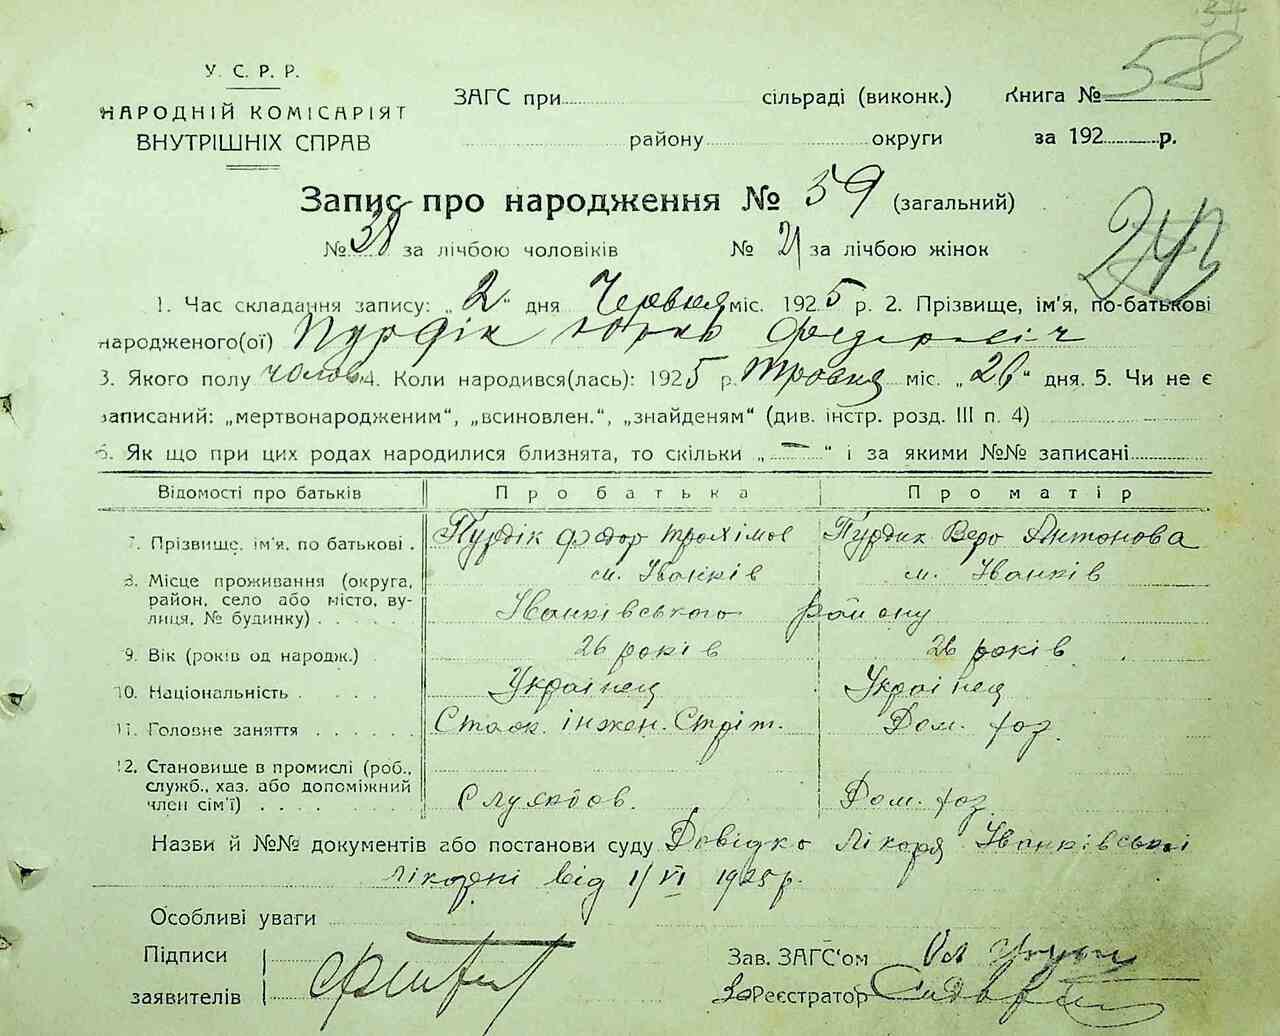 58
У. С. Р. Р.
НАРОДНІЙ КОМІСАРІЯТ
ВНУТРІШНІХ СПРАВ
ЗАГС при сільраді (виконк.) Книга №
району округи за 192 р.
Запис про народження № 59 (загальний)
№ 38 за лічбою чоловіків № 21 за лічбою жінок
243
1. Час складання запису: „2“ дня Червня міс. 1925 р. 2. Прізвище, ім’я, по-батькові
народженого(ої) Пурдік Юрко Федоровіч
3. Якого полу чолов. 4. Коли народився(лась): 1925 р. Травня міс. „26“ дня. 5. Чи не є
записаний: „мертвонародженим“, „всиновлен.“, „знайденям“ (див. інстр. розд. III п. 4)
6. Як що при цих родах народилися близнята, то скільки „—“ і за якими №№ записані
Відомості про батьків Про батька Про матір
7. Прізвище, ім’я, по батькові . Пурдік Федор Трохімов Пурдик Вера Антонова
8. Місце проживання (округа, м. Іванків м. Іванків
район, село або місто, ву- Іванківського району
лиця, № будинку) . . . . .
9. Вік (років од народж.) 26 років 26 років
10. Національність . . . . . Українец Українец
11. Головне заняття . . . . . . інжен. Дом. хоз.
12. Становище в промислі (роб.,
служб., хаз. або допоміжний
член сім’ї) . . . . . Службов. Дом. хоз.
Назви й №№ документів або постанови суду Довідка лікаря Іванківської
лікарні від 1/VI 1925 р.
Особливі уваги
Підписи Зав. ЗАГС’ом
заявителів За Реєстратор